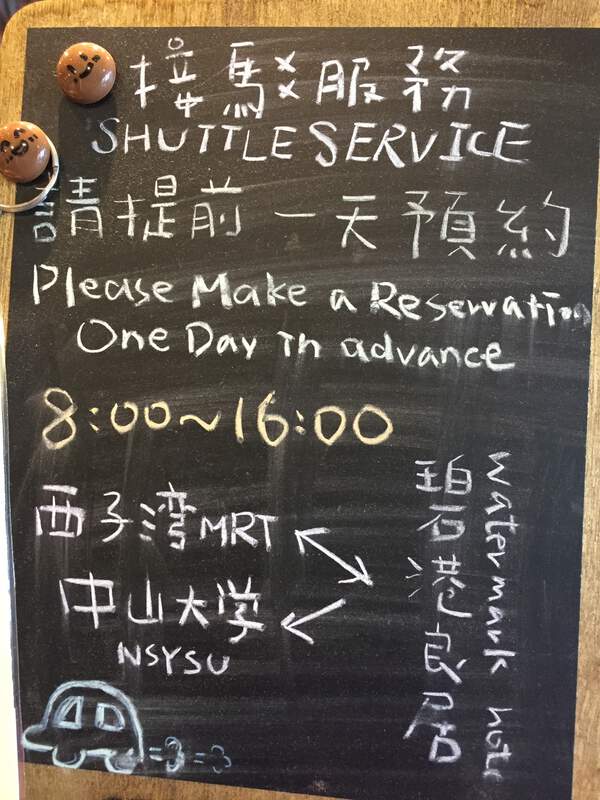 接駁服務
SHUTTLE SERVICE
請提前一天預約
Please Make a Reservation
One Day in advance
8:00~16:00
西子湾MRT
中山大学
NSYSU
碧港良居
watermark hote
=3 =3